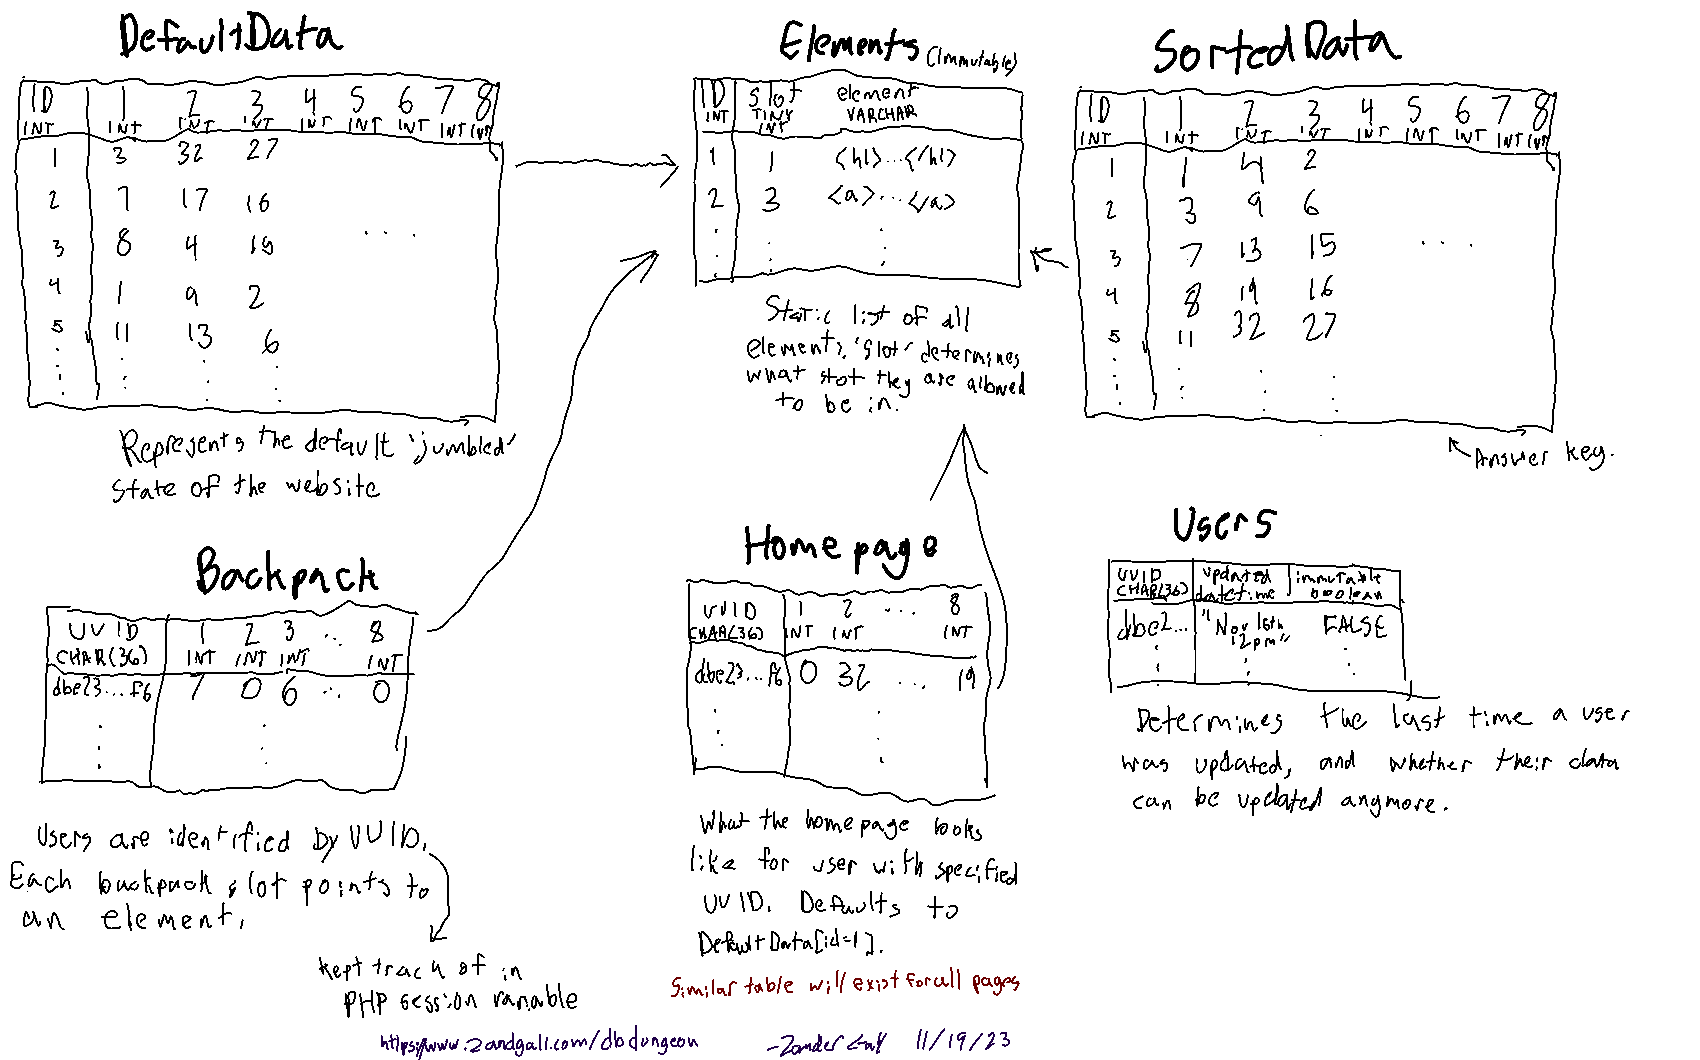 DefaultData
ID 1 2 3 4 5 6 7 8
INT INT INT INT INT INT INT INT INT
1 3 32 27
2 7 17 16
3 8 4 19 ...
4 1 9 2
5 11 13 6
Represents the default 'jumbled'
state of the website
Elements (Immutable)
ID slot element
INT TINY INT VARCHAR
1 1 <h1>...</h1>
2 3 <a>...</a>
Static list of all
elements, 'slot' determines
what slot they are allowed
to be in.
SortedData
ID 1 2 3 4 5 6 7 8
INT INT INT INT INT INT INT INT INT
1 1 4 2
2 3 9 6
3 7 13 15 ...
4 8 19 16
5 11 32 27
Answer key.
Backpack
UUID 1 2 3 ... 8
CHAR(36) INT INT INT INT
dbe23...f6 7 0 6 ... 0
Users are identified by UUID.
Each backpack slot points to
an element.
kept track of in
PHP session variable
Homepage
UUID 1 2 ... 8
CHAR(36) INT INT INT
dbe23...f6 0 32 ... 19
What the homepage looks
like for user with specified
UUID. Defaults to
DefaultData[id=1].
Similar table will exist for all pages
Users
UUID updated immutable
CHAR(36) datetime boolean
dbe2... "Nov 16th 12pm" FALSE
Determines the last time a user
was updated, and whether their data
can be updated anymore.
https://www.zandgall.com/dbdungeon
-Zander Gall 11/19/23